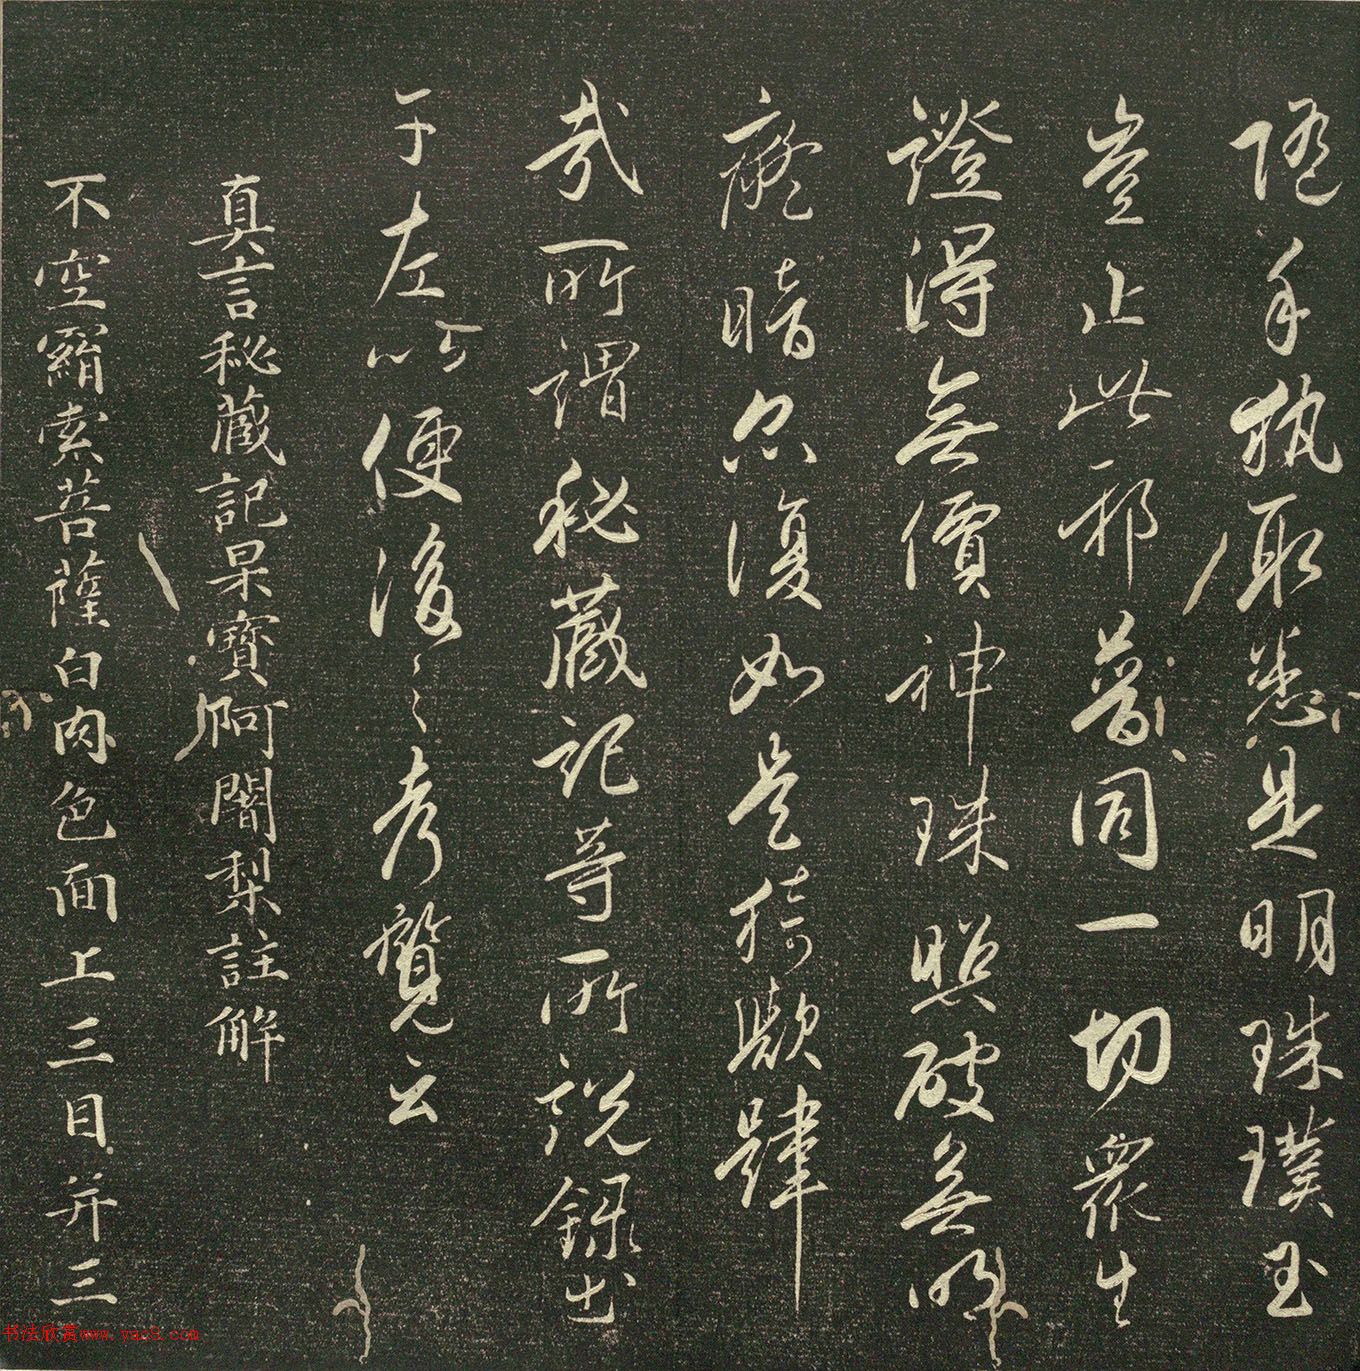 隨手執取悉是明珠璞玉
豈止此邪普同一切眾生
證得無價神珠照破無明
癡暗亦復如是猗歟肆
哉所謂秘藏記等所說錄出
于左以便後之考覽云
真言秘藏記杲寶阿闍梨註解
不空羂索菩薩白肉色面上三目并三
书法欣赏www.yac8.com